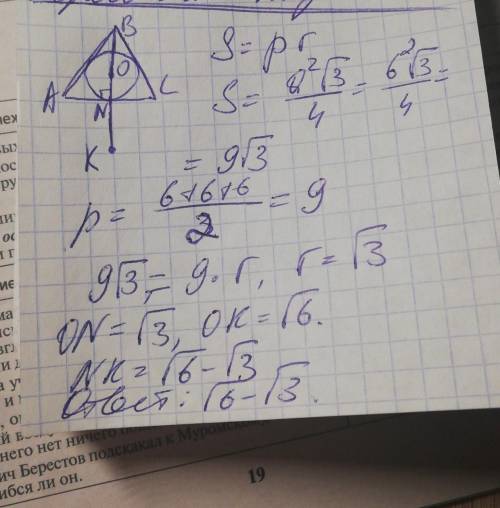 B
O
A N C
K
S = p r
S = a²√3/4 = 6²√3/4 =
= 9√3
p = (6+6+6)/2 = 9
9√3 = 9 · r, r = √3
ON = √3, OK = √6.
NK = √6 - √3
Ответ: √6 - √3.
него нет ничего
ич Берестов подскакал к Муромскому,
ибся ли он.
19